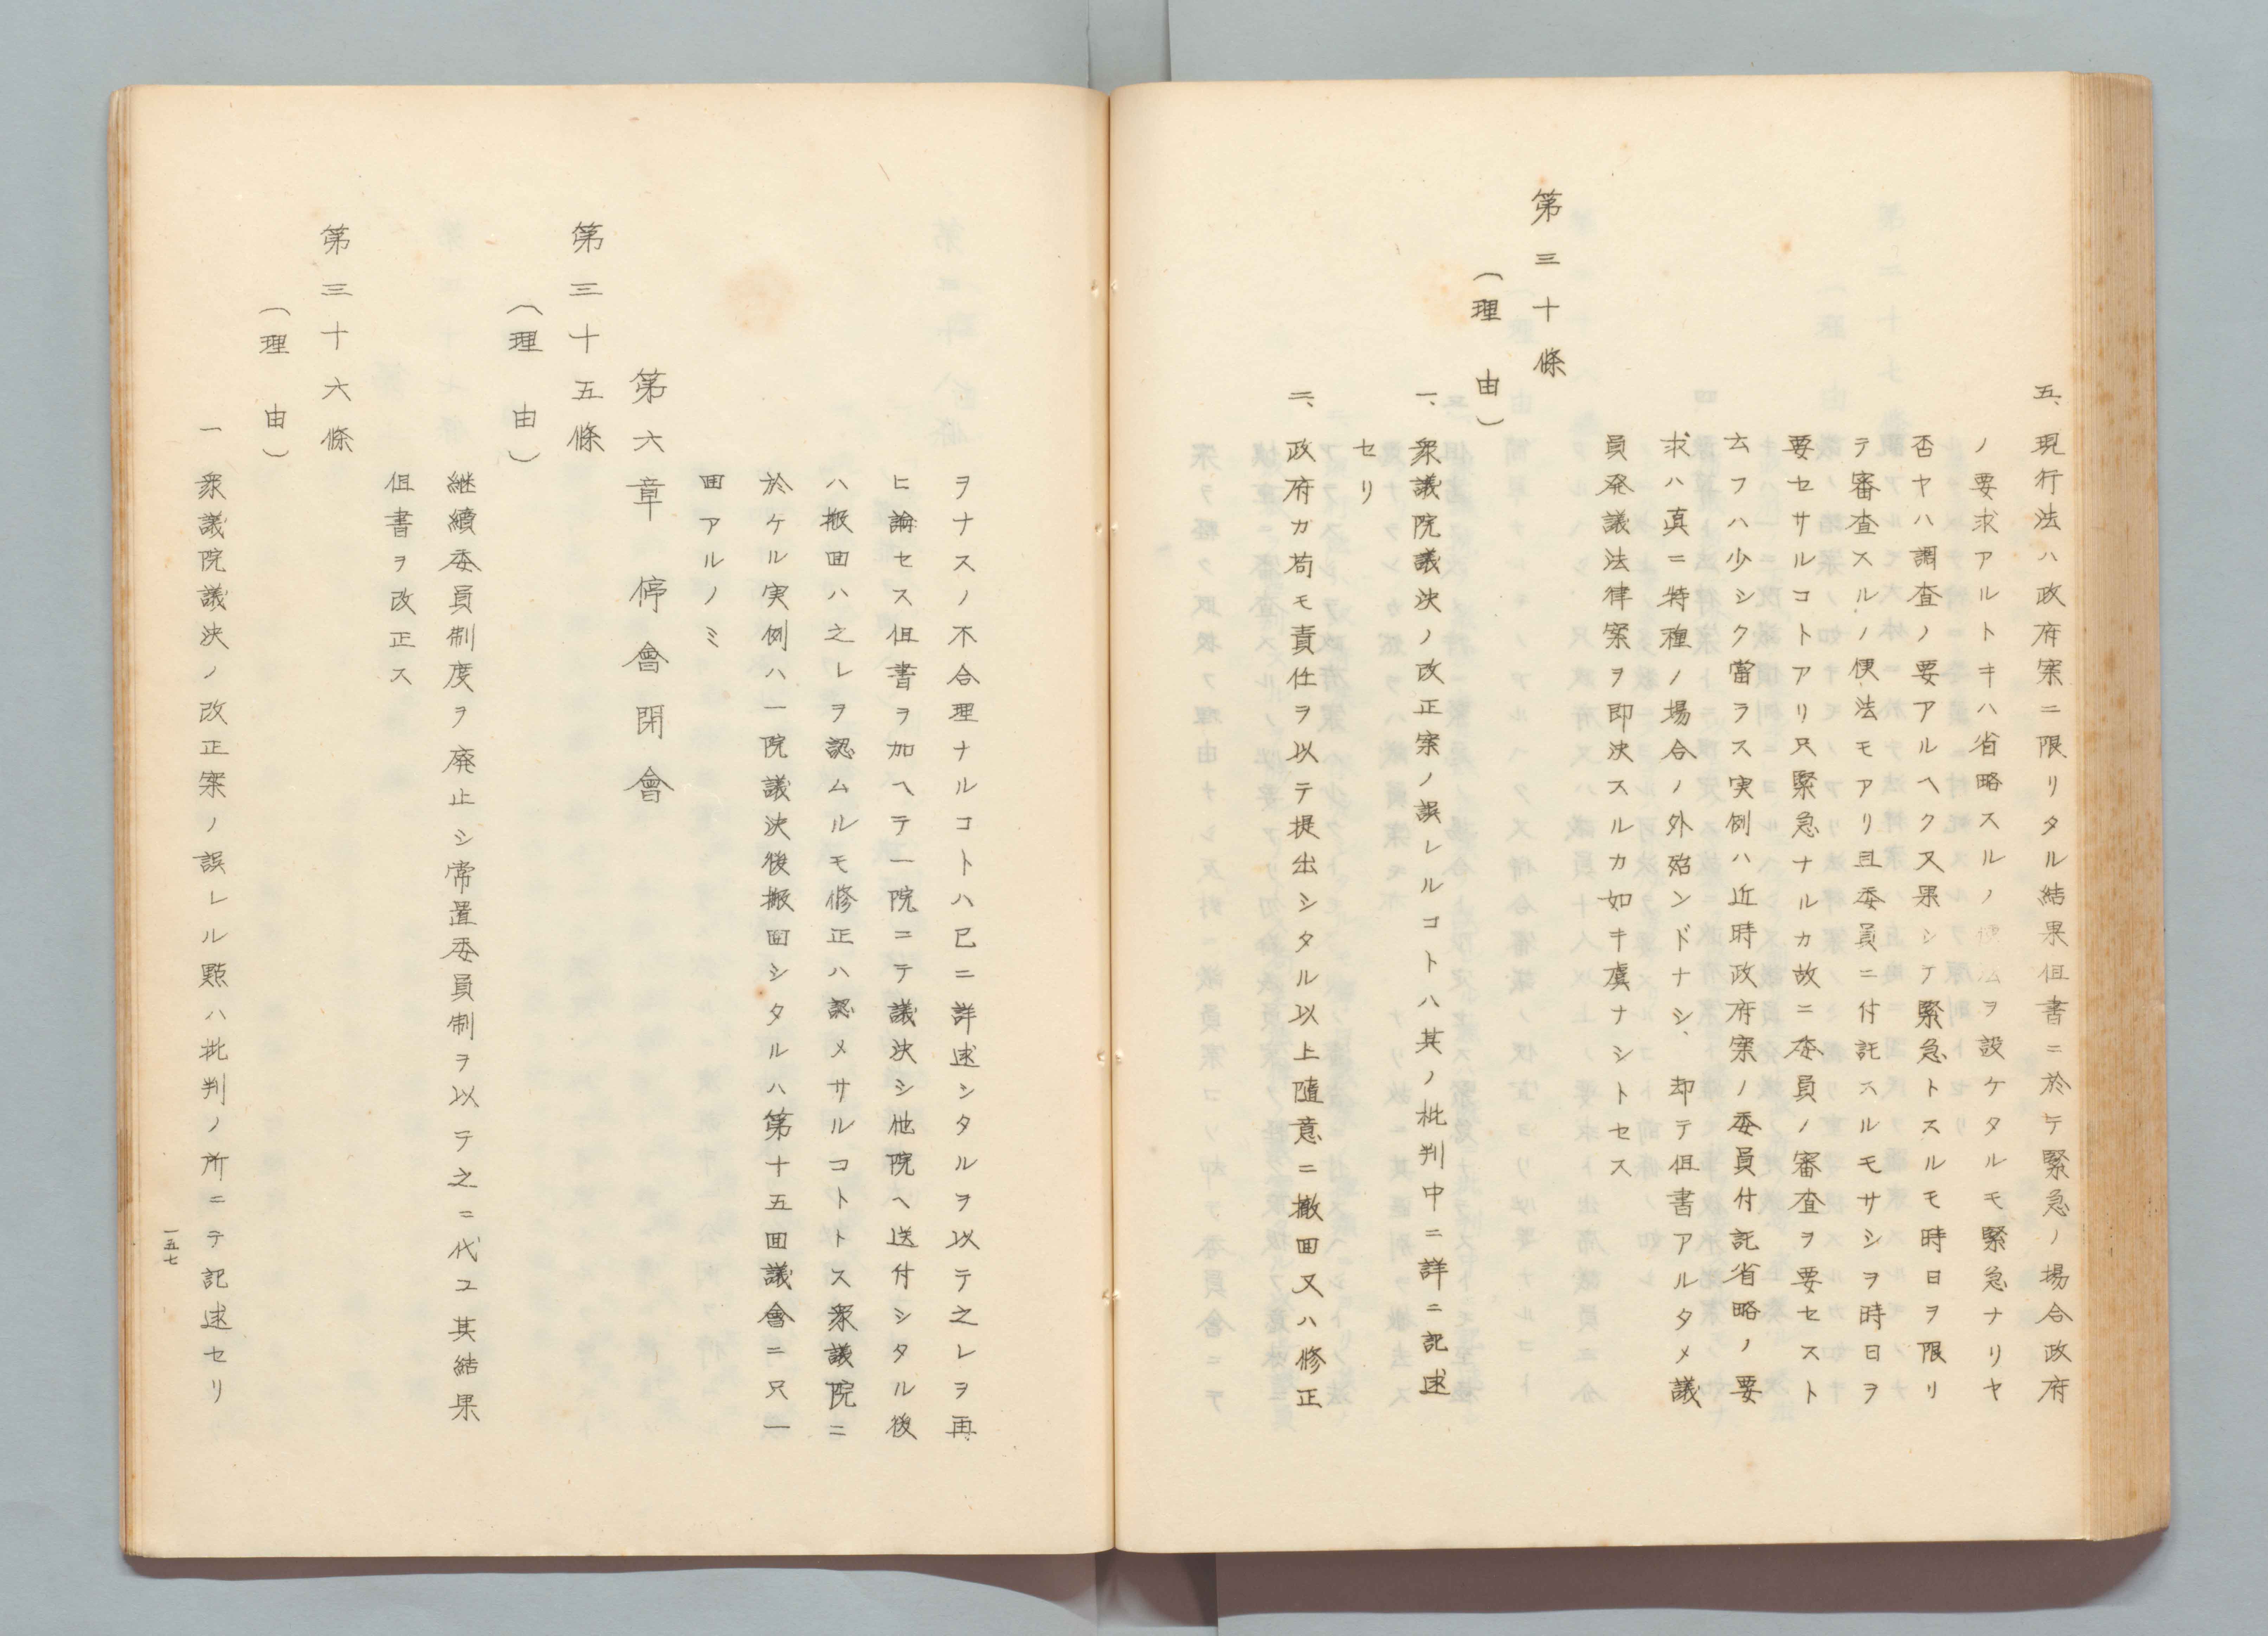 五、現行法ハ政府案ニ限リタル結果但書ニ於テ緊急ノ場合政府
ノ要求アルトキハ省略スルノ法ヲ設ケタルモ緊急ナリヤ
否ヤハ調査ノ要アルヘク又果シテ緊急トスルモ時日ヲ限リ
テ審査スルノ便法モアリ且委員ニ付託スルモサシヲ時日ヲ
要セサルコトアリ只緊急ナルカ故ニ委員ノ審査ヲ要セスト
云フハ少シク當ラス実例ハ近時政府案ノ委員付託省略ノ要
求ハ真ニ特種ノ場合ノ外殆ンドナシ、却テ但書アルタメ議
員発議法律案ヲ即決スルカ如キ虞ナシトセス
第三十條
(理由)
一、衆議院議決ノ改正案ノ誤レルコトハ其ノ批判中ニ詳ニ記述
セリ
二、政府カ苟モ責任ヲ以テ提出シタル以上隨意ニ撤回又ハ修正
ヲナスノ不合理ナルコトハ已ニ詳述シタルヲ以テ之レヲ再
ヒ論セス但書ヲ加ヘテ一院ニテ議決シ他院ヘ送付シタル後
ハ撤回ハ之レヲ認ムルモ修正ハ認メサルコトトス衆議院ニ
於ケル実例ハ一院議決後撤回シタルハ第十五回議會ニ只一
回アルノミ
第六章 停會閉會
第三十五條
(理由)
継續委員制度ヲ廃止シ常置委員制ヲ以テ之ニ代ユ其結果
但書ヲ改正ス
第三十六條
(理由)
一 衆議院議決ノ改正案ノ誤レル點ハ批判ノ所ニテ記述セリ
一五七